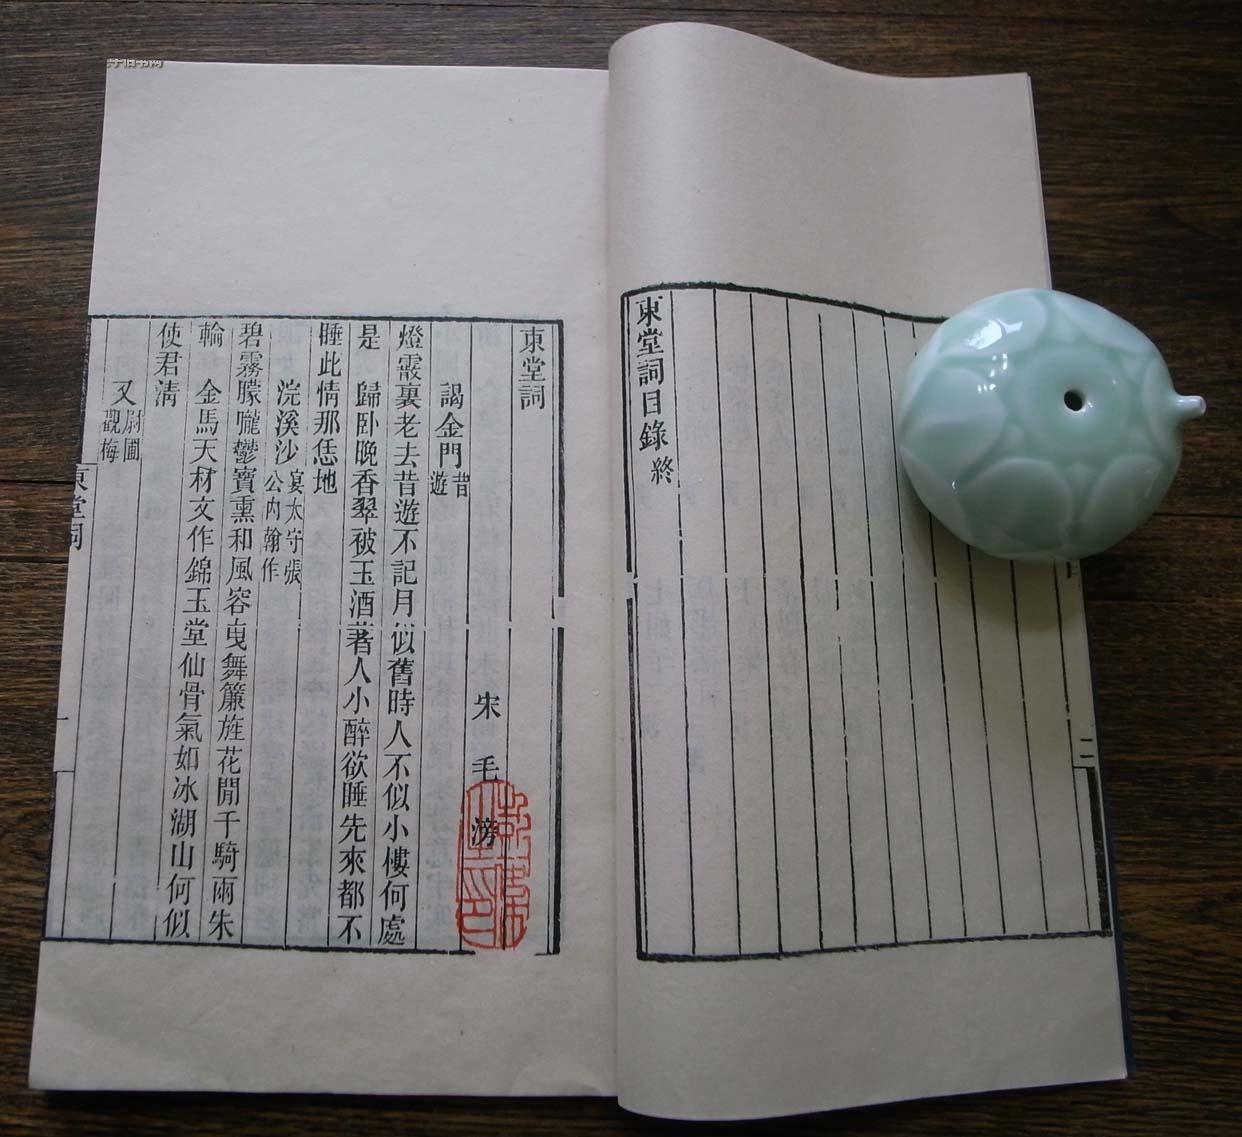 二
東堂詞目錄終
東堂詞
宋 毛 滂
謁金門 昔遊
燈霰裏老去昔遊不記月似舊時人不似小樓何處
是 歸臥晚香翠被玉酒著人小醉欲睡先來都不
捶此情那恁地
浣溪沙 宴太守張公內翰作
碧霧朦朧鬱寶熏和風容曳舞簾旌花閒千騎兩朱
輪 金馬天材文作錦玉堂仙骨氣如冰湖山何似
使君清
又 尉圃觀梅
東堂詞 一